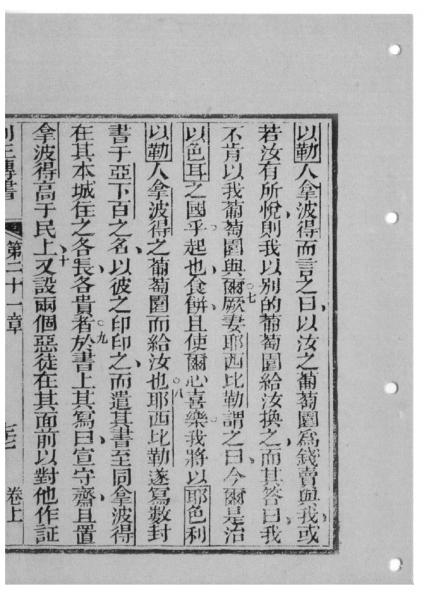 以勒人拿波得而言之曰、以汝之葡萄園爲錢賣與我、或
若汝有所悅、則我以別的葡萄園給汝換之、而其答曰、我
不肯以我葡萄園與爾。七厥妻耶西比勒謂之曰、今爾是治
以色耳之國乎。起也、食餅、且使爾心喜樂。我將以耶色利
以勒人拿波得之葡萄園而給汝也。八耶西比勒遂寫數封
書于亞下百之名、以彼之印印之、而遣其書至同拿波得
在其本城住之各長、各貴者。九於書上其寫曰、宣守齋、且置
拿波得高于民上、十又設兩個惡徒在其面前、以對他作証
列王傳書 第二十一章 卷上